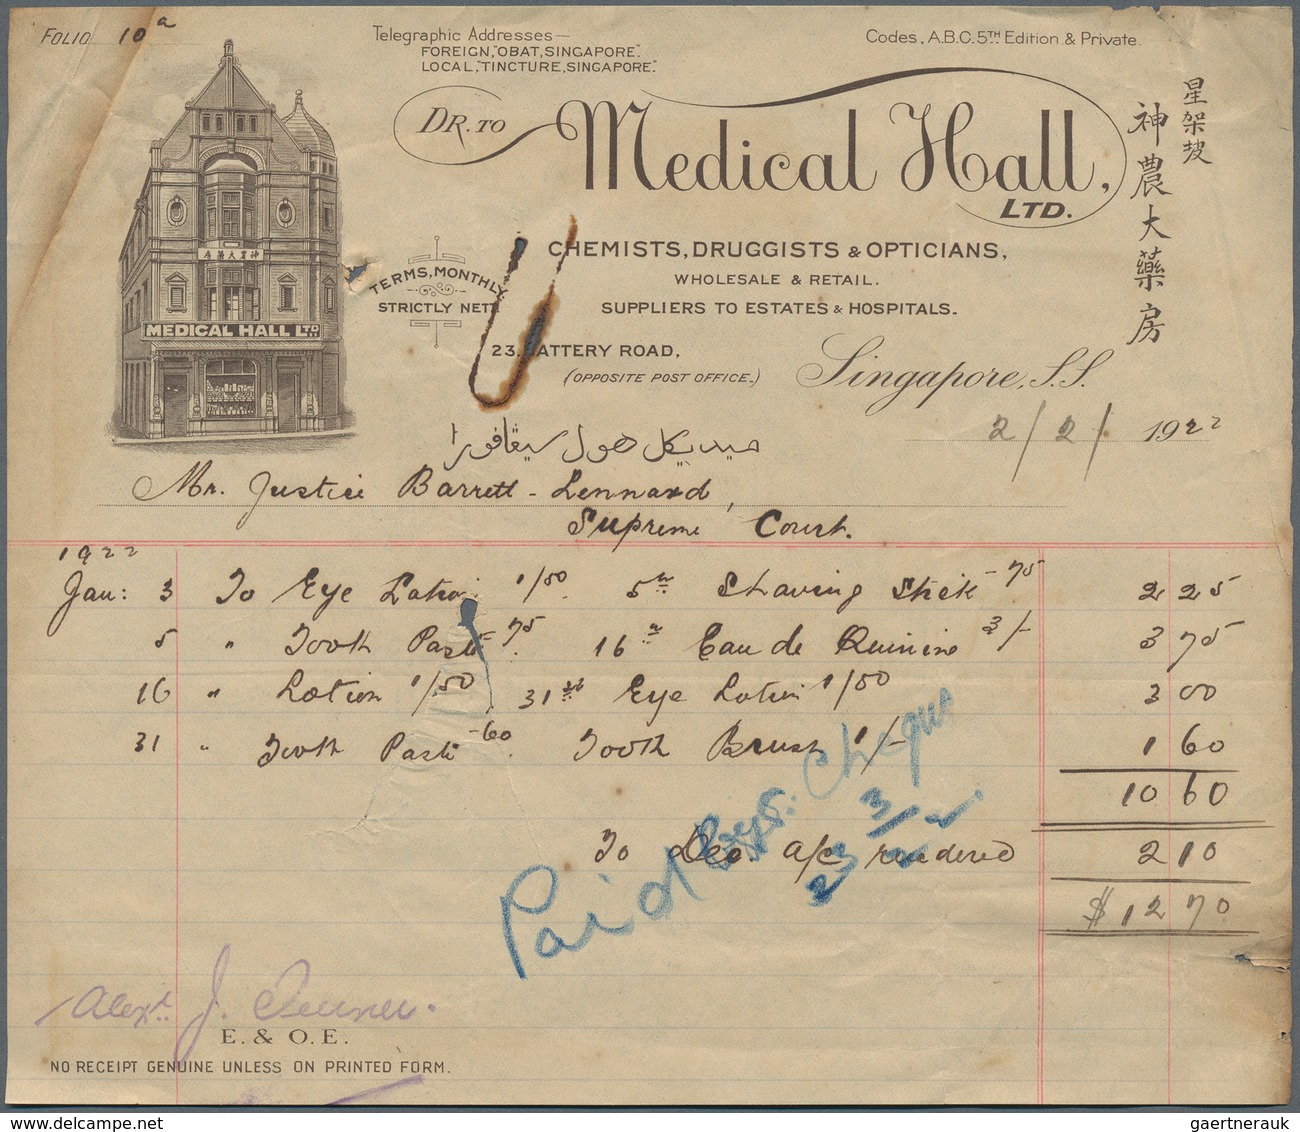 FOLIO 10a
Telegraphic Addresses—
FOREIGN, "OBAT, SINGAPORE".
LOCAL, "TINCTURE, SINGAPORE".
Codes, A.B.C. 5TH Edition & Private.
DR. TO Medical Hall, LTD.
星架坡
神農大藥房
房藥大農神
MEDICAL HALL LTD
TERMS, MONTHLY,
STRICTLY NETT
CHEMISTS, DRUGGISTS & OPTICIANS,
WHOLESALE & RETAIL.
SUPPLIERS TO ESTATES & HOSPITALS.
23, BATTERY ROAD,
(OPPOSITE POST OFFICE.)
Singapore, S.S.
2/2/ 1922
ميديكل هول سيڠافورا
Mr. Justice Barrett-Lennard,
Supreme Court.
1922
Jan: 3 To Eye Lotion 1/50. 5th Shaving Stick -75 2 25
5 " Tooth Paste 75. 16th Eau de Quinine 3/- 3 75
16 " Lotion 1/50 31st Eye Lotion 1/50 3 00
31 " Tooth Paste -60 Tooth Brush 1/- 1 60
10 60
To Dec. a/c rendered 2 10
$ 12 70
Paid Cheque
23/3/22.
Alexr. J.
E. & O. E.
NO RECEIPT GENUINE UNLESS ON PRINTED FORM.
gaertnerauk